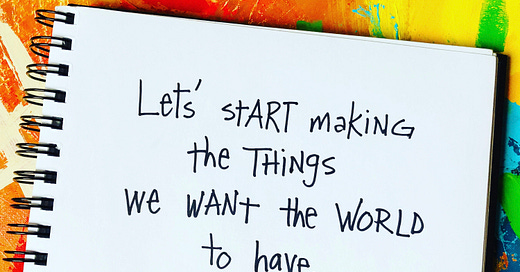 Lets' stART making
the THINGS
we WANT the WORLD
to have